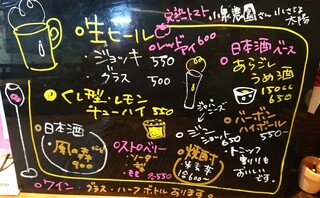 完熟トマト 小泉農園さん
生ビール
・ジョッキ 550
・グラス 500
レッドアイ 600
日本酒ベース
あらごし
うめ酒
150cc
650
くし形レモン
チューハイ 550
ジン
ショット 650
バーボン
ハイボール
550~
・トニック
割りも
おいしい
です。
日本酒
風の森
ストロベリー
ソーダ
焼酎
麦 芋
各600~
ワイン・グラス・ハーフボトルあります。